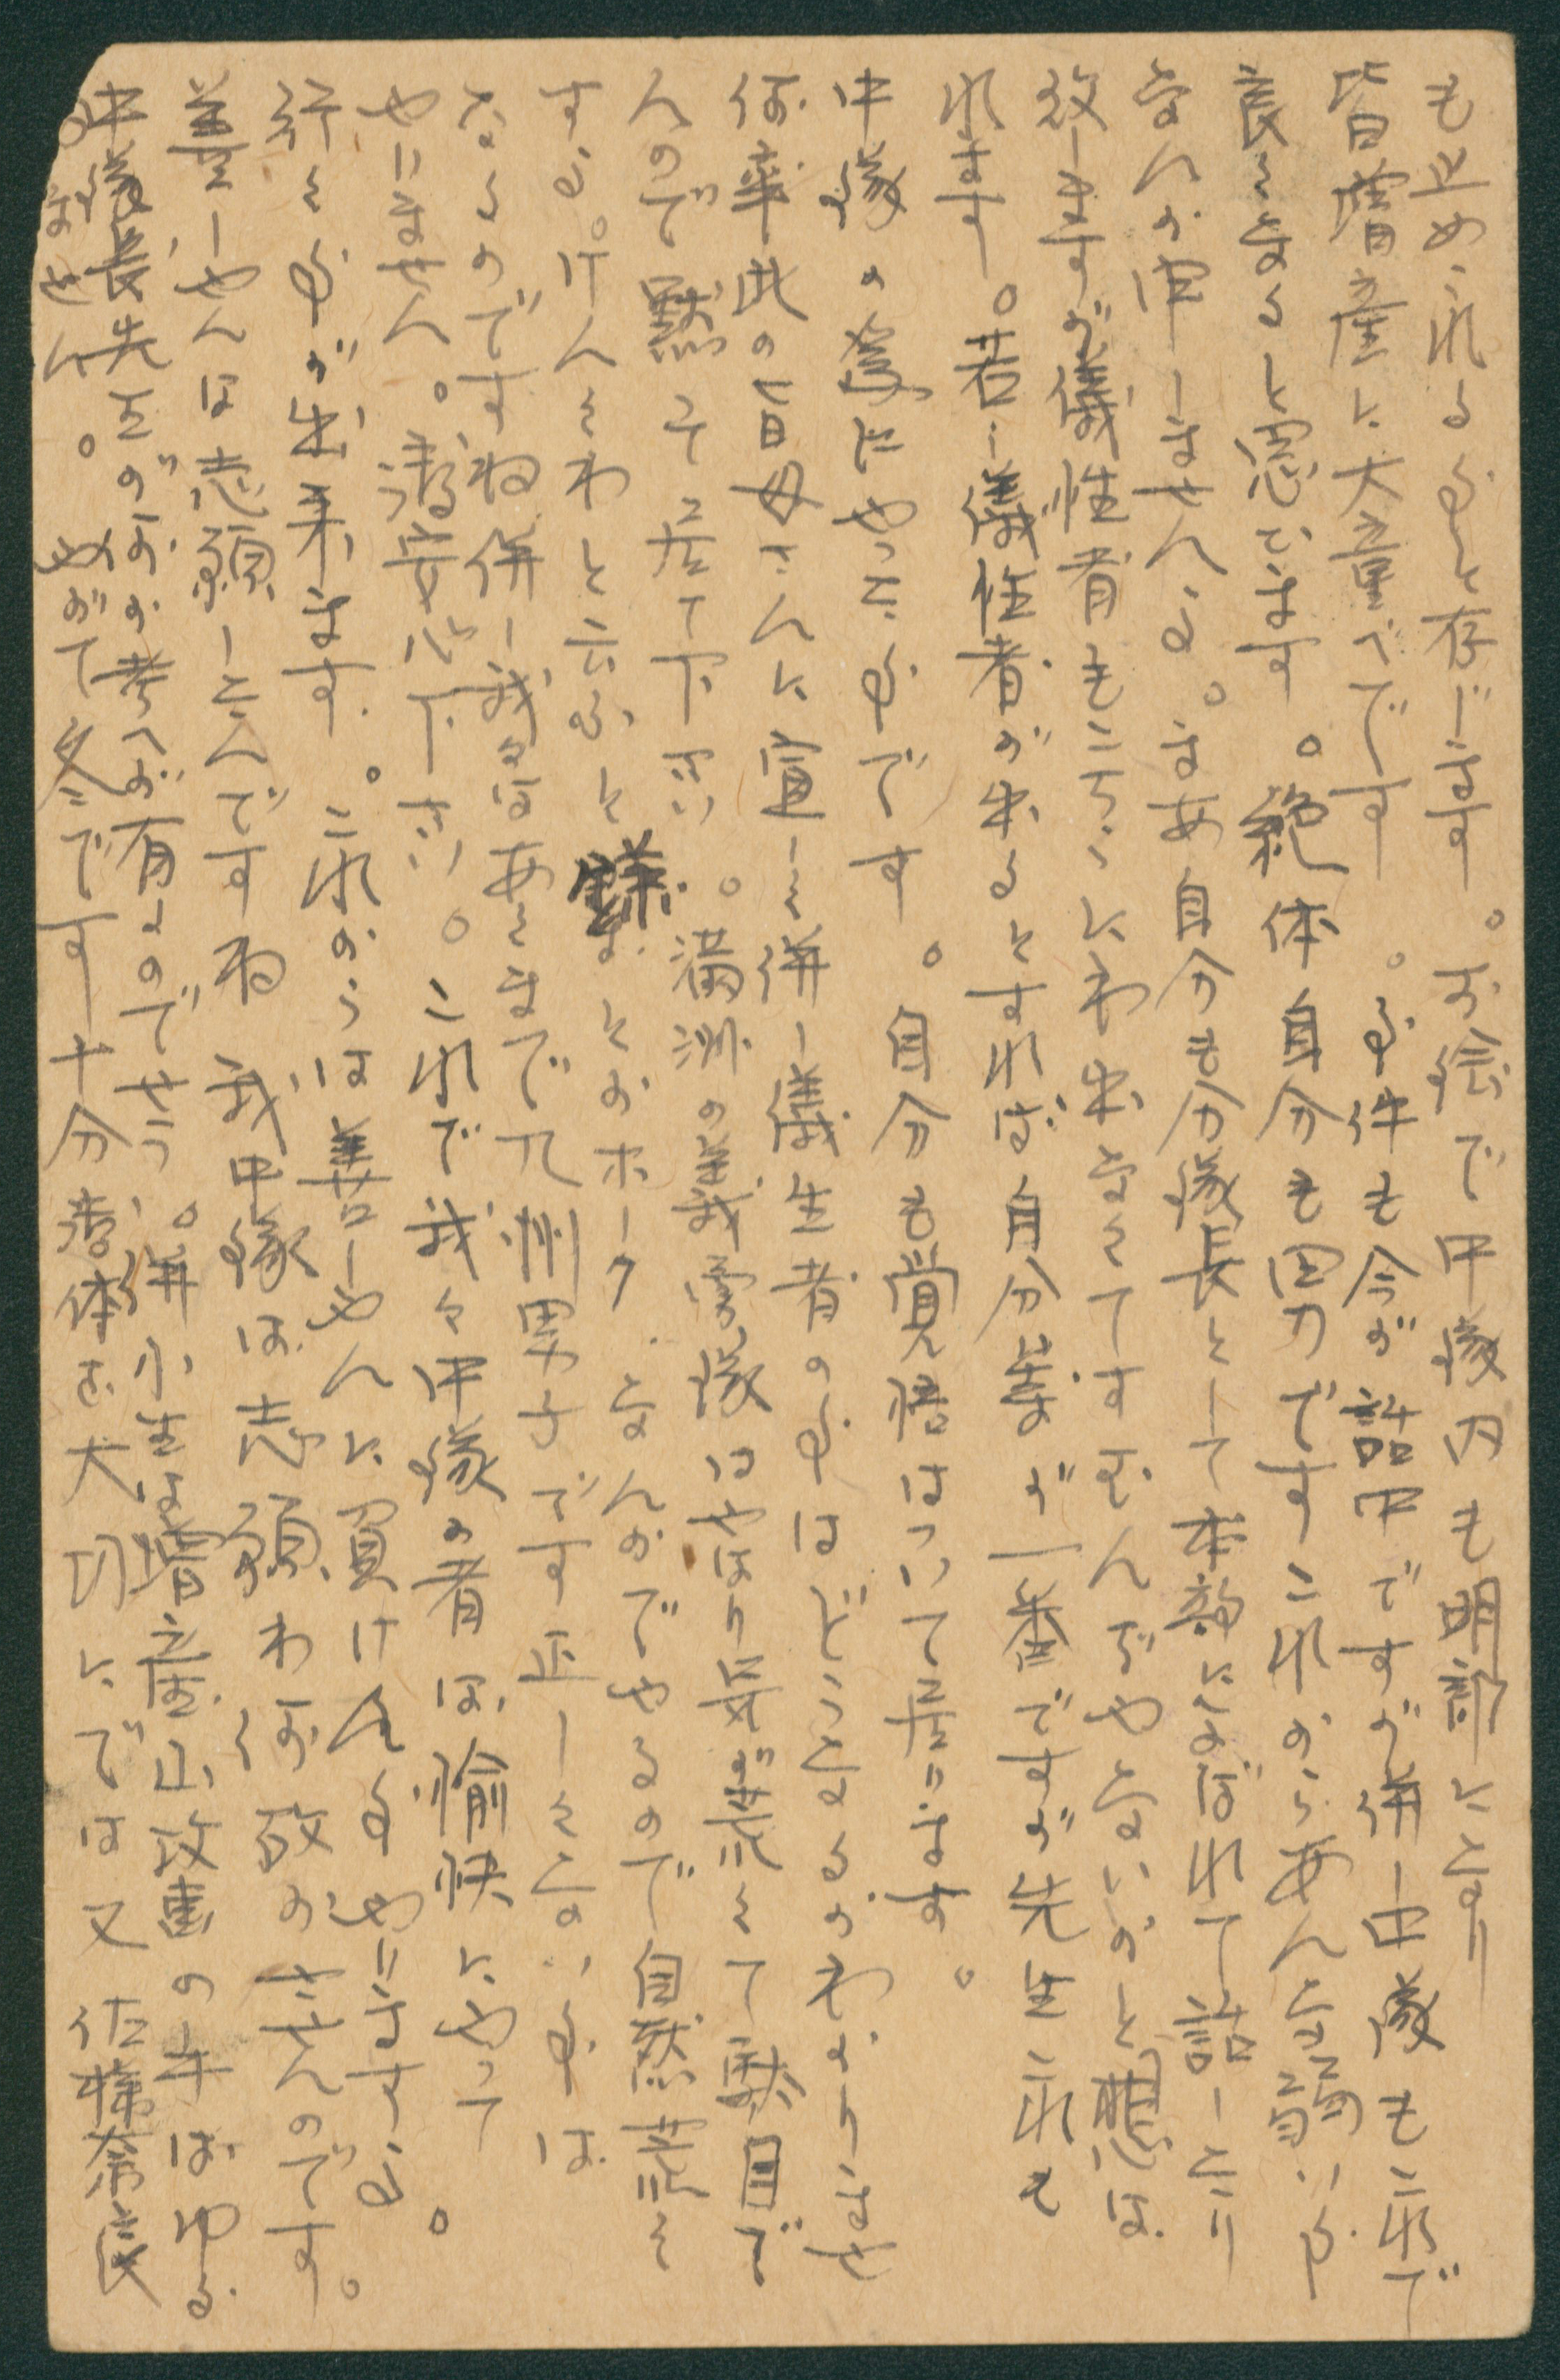 も止められる事と存じます。お陰で中隊内も明部になり
皆増産に大童べです。事件も今が詰中ですが併し中隊もこれで
良くなると思います。絶体自分も男ですこれからあんな弱い事
なんか申しませんよ。まあ自分も分隊長として本部によばれて話したり
致しますが儀性者もこちらにわ出なくてすずんぢやないかと想は
れます。若し儀性者が出るとすれば自分等が一番ですが先生これも
中隊の為にやった事です。自分も覚悟はついて居います。
何率此の旨母さんに宣しく併し儀生者の事はどうなるかわかりませ
んので黙って居て下さい。満洲の義勇隊はやはり気が荒くて駄目で
すよ。けんくわと云ふと鎌なとかホーク、なんかでやるので自然荒く
なるのですね併し我々はあくまで九州男子です正しくない事は
やいません。御安心下さい。これで我々中隊の者は愉快にやって
行く事が出来ます。これからは善しやんに負けん様やいますよ。
善しやんは志願したんですね 我中隊は志願わ何故かさせんのです。
中隊長先生が何か考へが有るのでせう。併小生は増産山攻東の斗はゆる
みません。やがて冬です十分御体を大切にでは又 佐様奈良